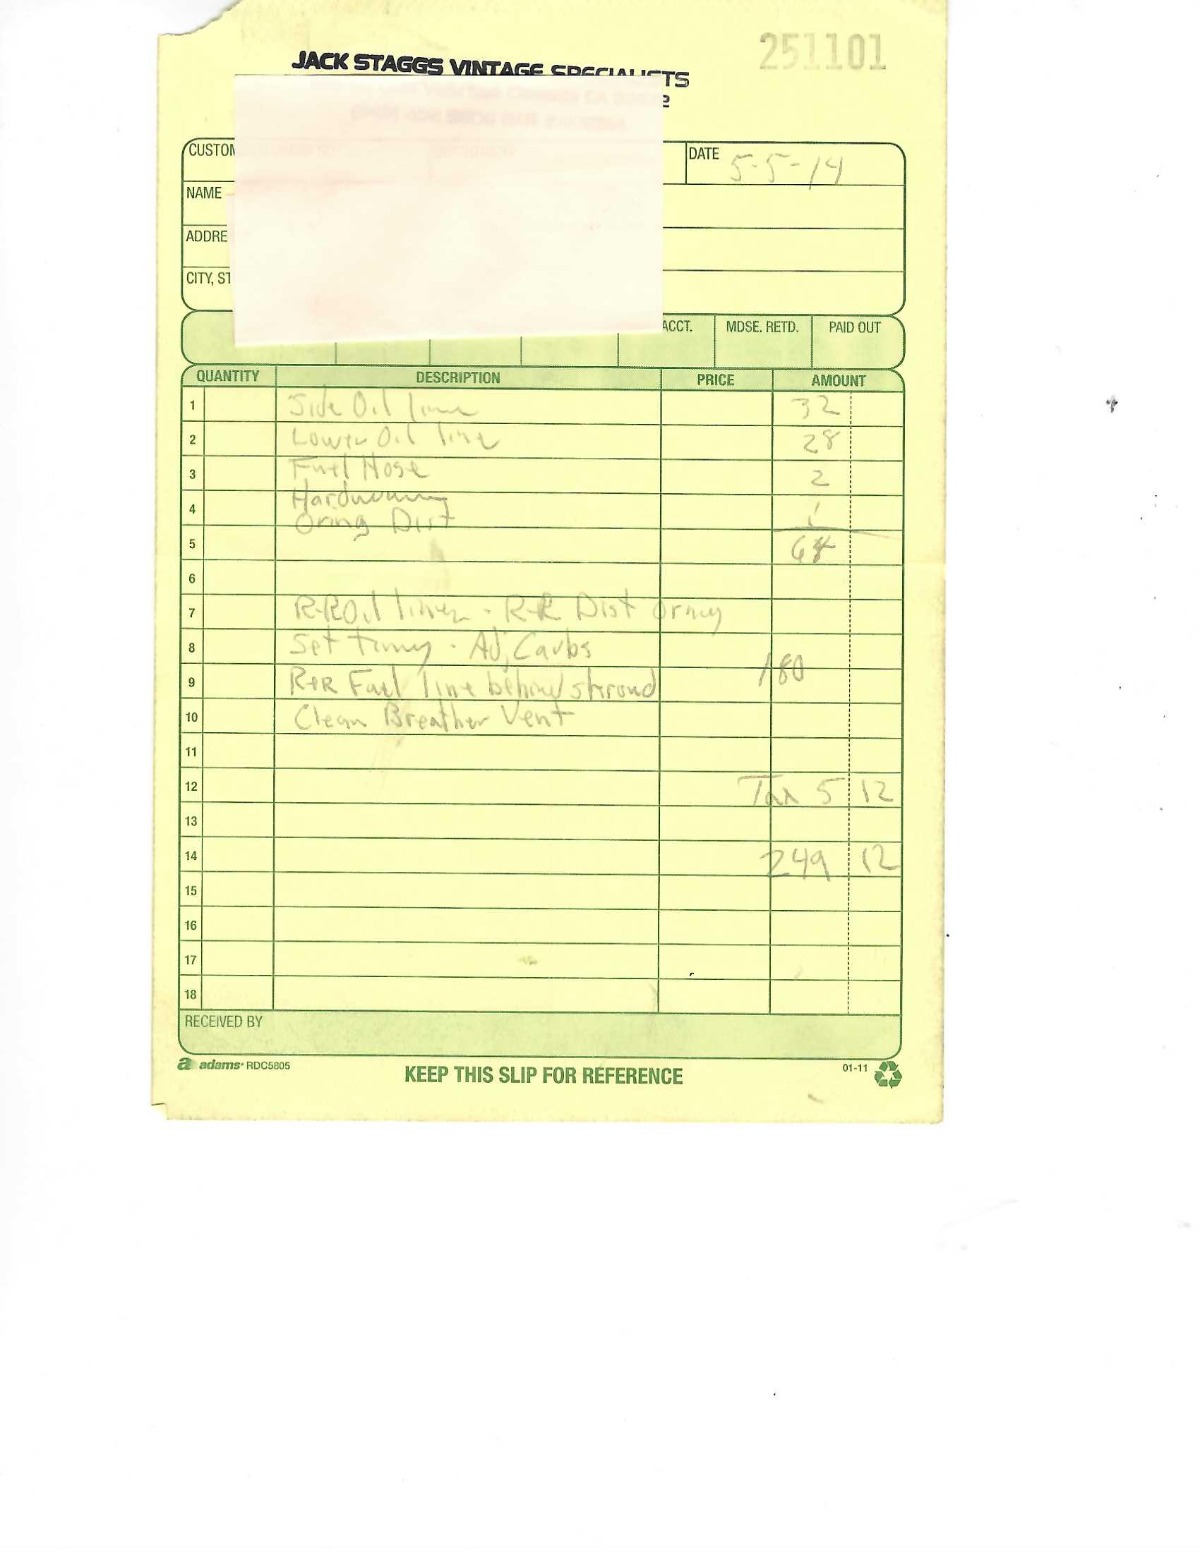 251101
JACK STAGGS VINTAGE SPECIALISTS
CUSTOM
DATE 5-5-14
NAME
ADDRE
CITY, ST
ACCT. MDSE. RETD. PAID OUT
QUANTITY DESCRIPTION PRICE AMOUNT
1 Side Oil line 32
2 Lower Oil line 28
3 Fuel Hose 2
4 Hardware
Oring Dist
5 64
6
7 R-R Oil lines - R-R Dist Oring
8 Set Timing - Adj Carbs
9 R+R Fuel line behind shroud 180
10 Clean Breather Vent
11
12 Tax 5 12
13
14 249 12
15
16
17
18
RECEIVED BY
a adams RDC5805
KEEP THIS SLIP FOR REFERENCE
01-11